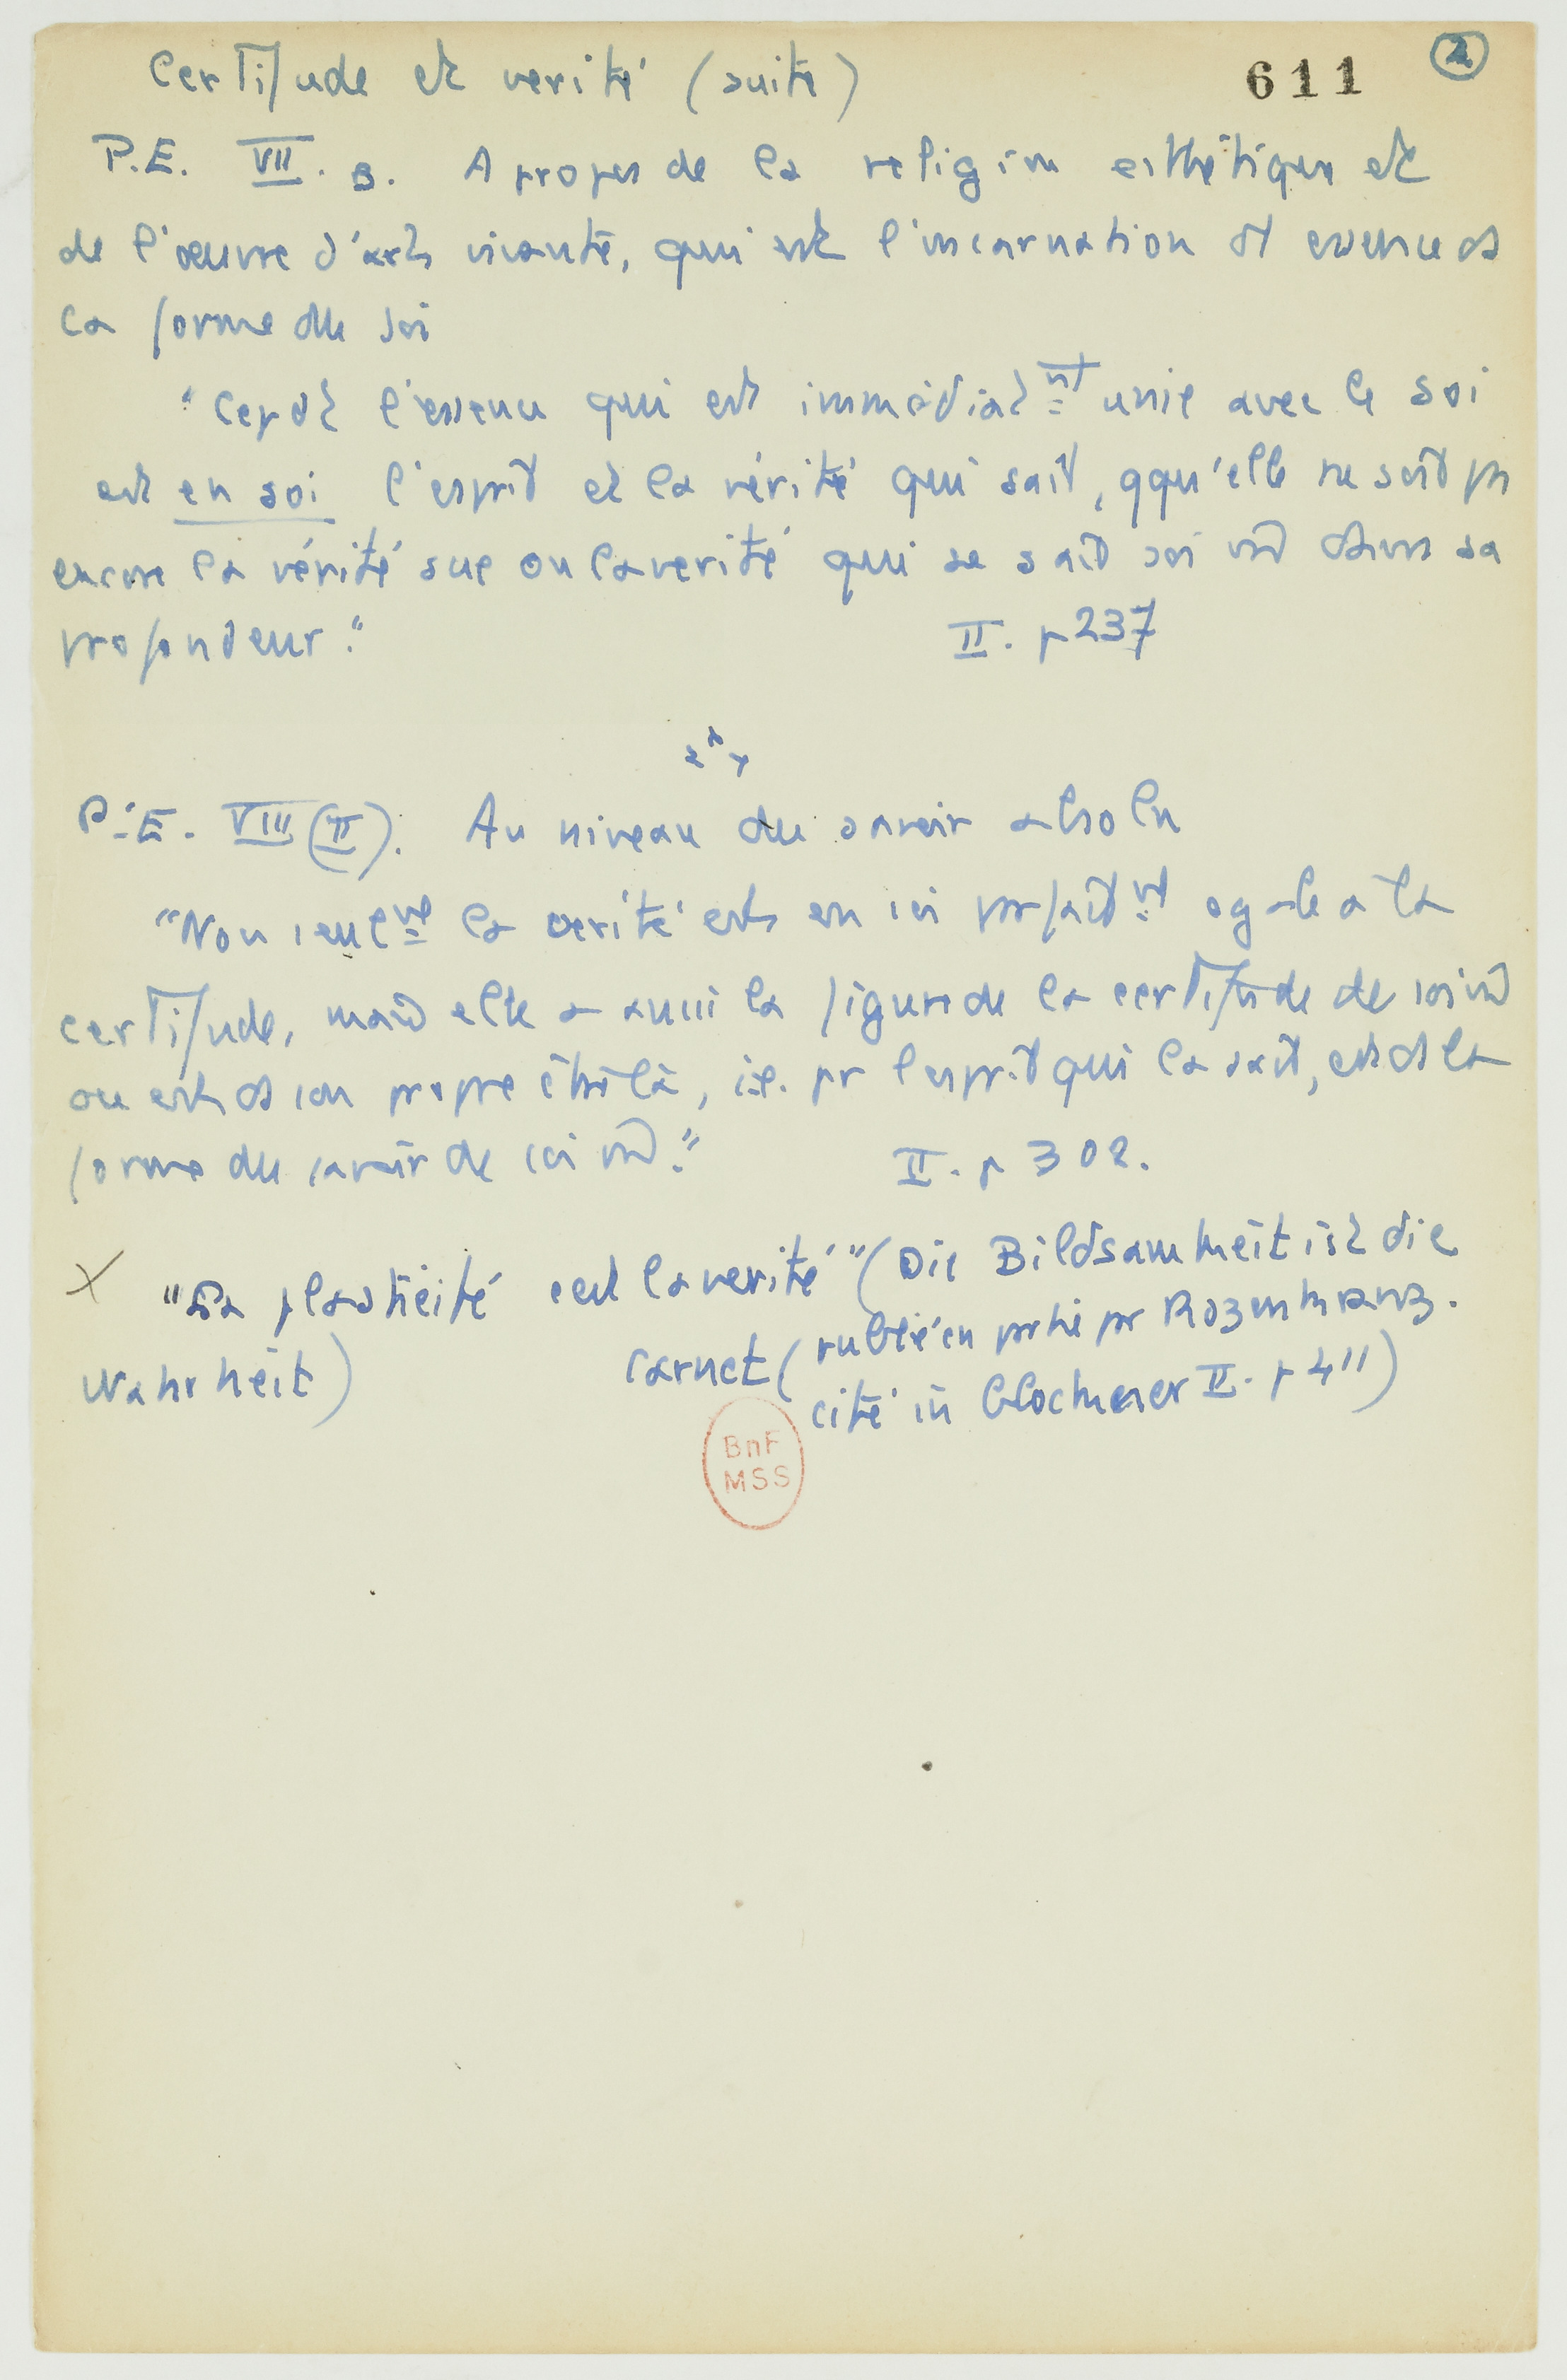 Certitude et verité (suite)
611
2
P.E. VII. B. A propos de la religion esthétique et
de l'œuvre d'art vivante, qui est l'incarnation de essence ds
la forme du soi
"Cepdt l'essence qui est immédiatnt unie avec le soi
est en soi l'esprit et la vérité qui sait, qqu'elle ne soit ps
encore la vérité sue ou la verité qui se sait soi m̂ dans sa
profondeur."
II. p 237
P.E. VIII (II). Au niveau du savoir absolu
"Non seulnt la verité est en soi parfaitnt egale a la
certitude, mais elle a aussi la figure de la certitude de soi m̂
ou est ds son propre être là, i.e. pr l'esprit qui la sait, est ds la
forme du savoir de soi m̂."
II. p 302.
X "La plasticité est la verité" (Die Bildsamkeit ist die
Wahrheit)
Carnet (publié en partie par Rozenkranz.
cité in Glockner II. p 411)
BnF
MSS